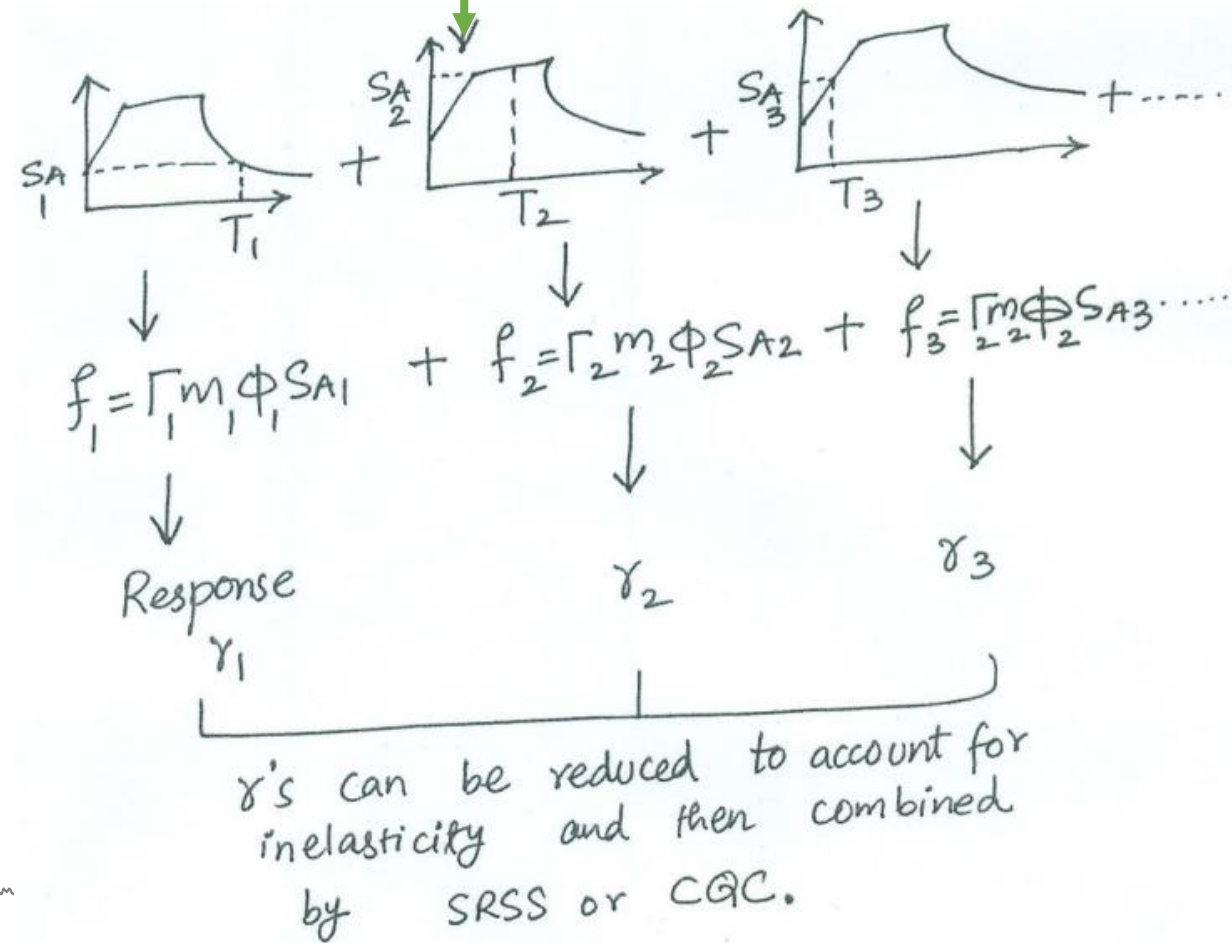 SA1 + SA2 + SA3 + ......
T1 T2 T3
f1 = Γ1 m1 Φ1 SA1 + f2 = Γ2 m2 Φ2 SA2 + f3 = Γ2 m2 Φ2 SA3 ......
Response
r1 r2 r3
r's can be reduced to account for
inelasticity and then combined
by SRSS or CQC.